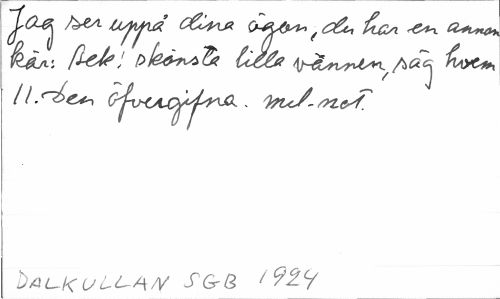 Jag ser uppå dina ögon, du har en annan
kär: Bek: skönsta lilla vännen, säg hvem
11. Den öfvergifna. mel-not.
DALKULLAN SGB 1924